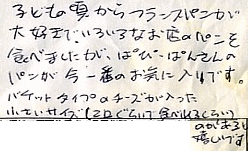 子どもの頃からフランスパンが
大好きで、いろいろなお店のパンを
食べましたが、ぱぴ・ぱんさんの
パンが今一番のお気に入りです。
バゲットタイプのチーズが入った
小さいサイズ(二口ぐらいで食べれるくらい)
のがあると
嬉しいです